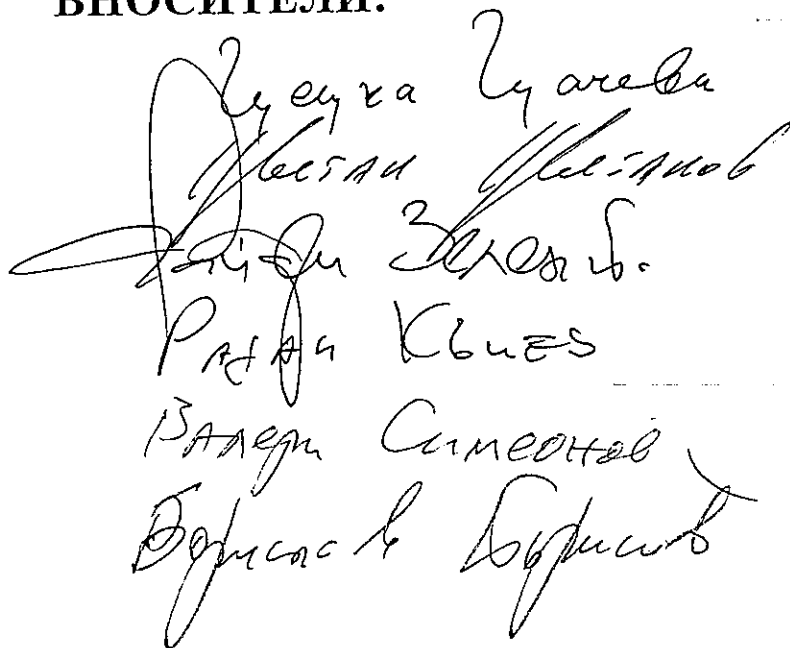 ВНОСИТЕЛИ:
Цецка Цачева
Цветан Цветанов
Димитри
Радан Кънев
Валери Симеонов
Борислав Борисов